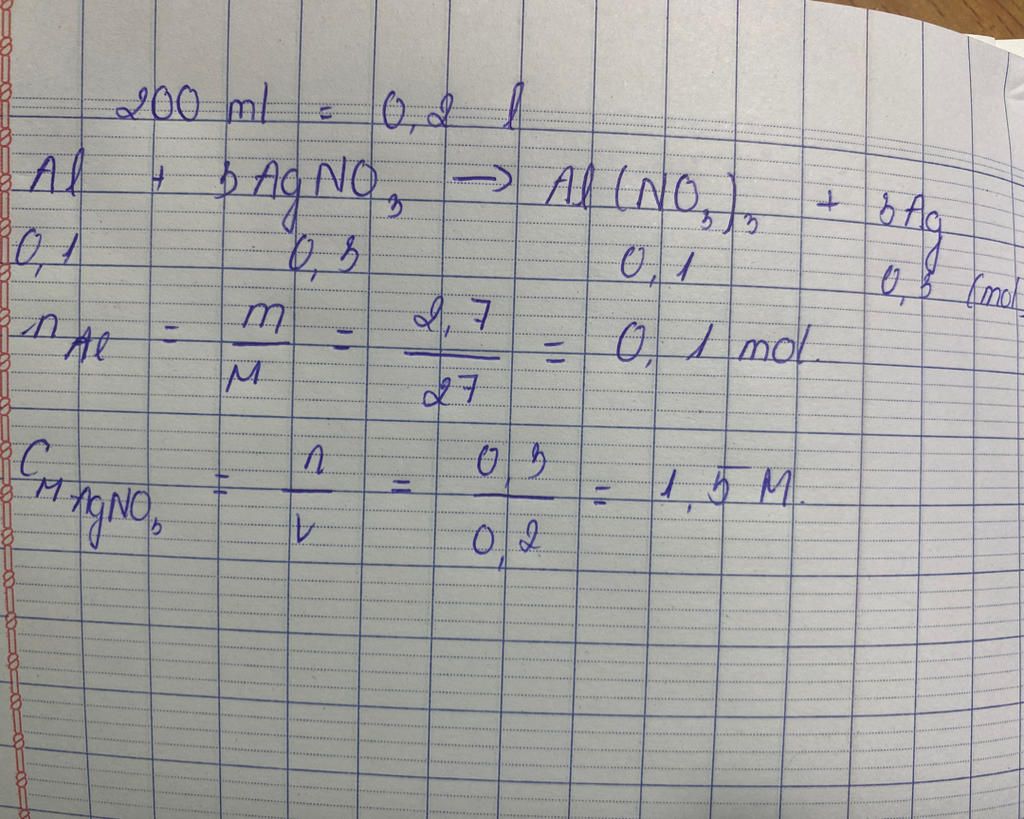 200 ml = 0,2 l
Al + 3AgNO₃ → Al(NO₃)₃ + 3Ag
0,1 0,3 0,1 0,3 (mol
n Al = m/M = 2,7/27 = 0,1 mol.
C M AgNO₃ = n/V = 0,3/0,2 = 1,5 M.